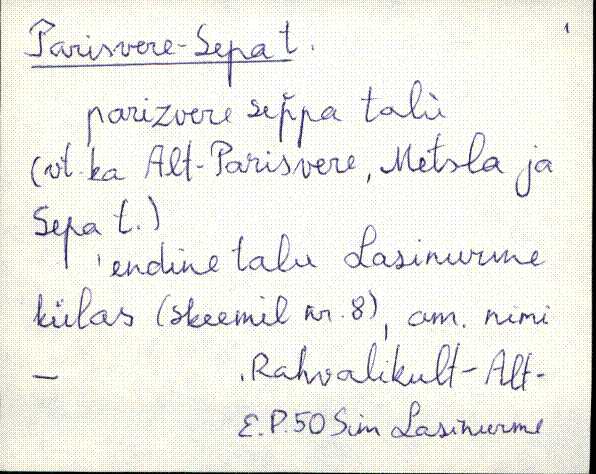 Parisvere-Sepa t. 1
parizvere sep̆pa talù
(vt. ka Alt-Parisvere, Metsla ja
Sepa t.)
'endine talu Lasinurme
külas (skeemil nr. 8), am. nimi
– . Rahvalikult - Alt-
E.P. 50 Sim Lasinurme